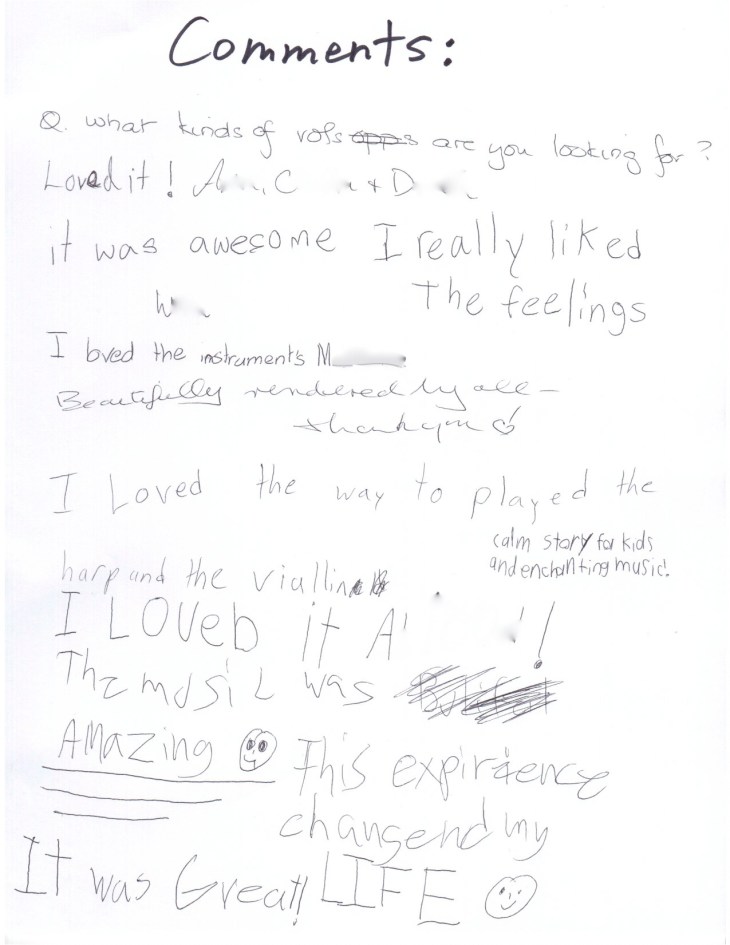 Comments:
Q. what kinds of vols are you looking for?
Loved it! A C + D
it was awesome I really liked
The feelings
W
I loved the instruments M
Beautifully rendered by all –
thank you
I Loved the way to played the
harp and the viallin
calm story for kids
and enchanting music!
I LOVEb it A !
The music was
AMazing
This expirience
changend my
LIFE
It was Great!!